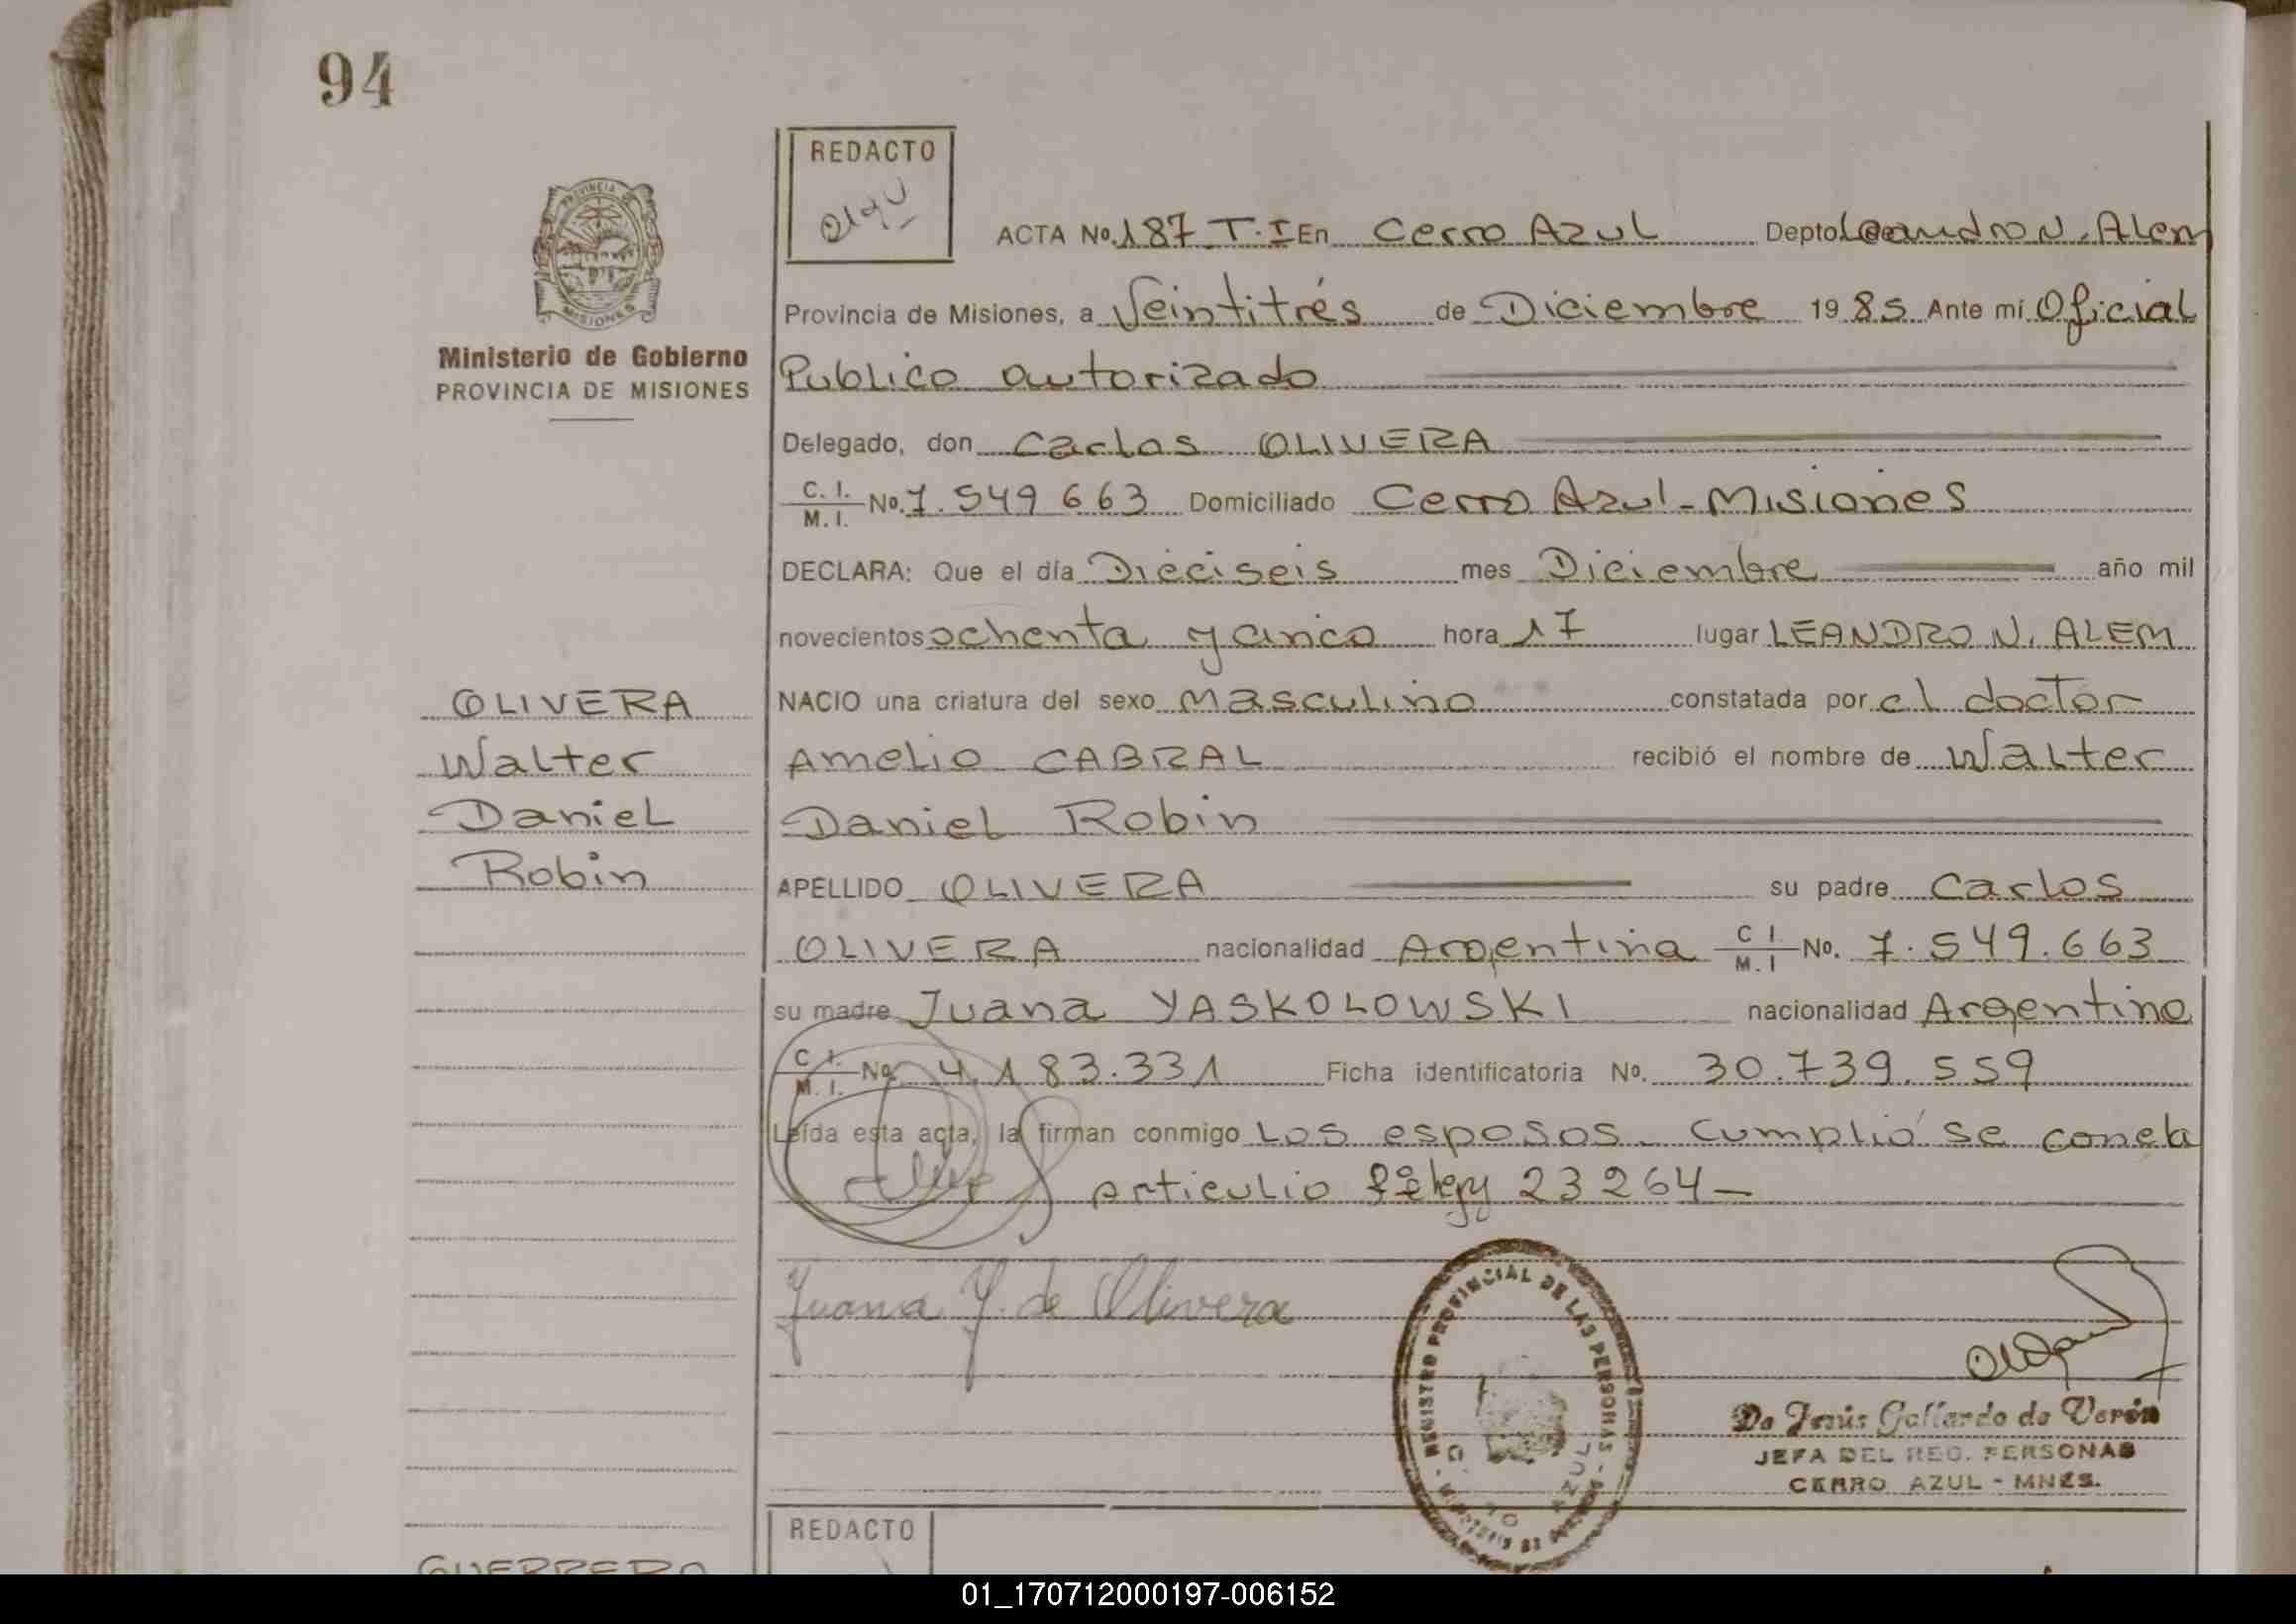 94
REDACTO
PROVINCIA
MISIONES
Ministerio de Gobierno
PROVINCIA DE MISIONES
ACTA No. 187 T.I En Cerro Azul Depto Leandro N. Alem
Provincia de Misiones, a Veintitrés de Diciembre 1985 Ante mí Oficial
Publico autorizado
Delegado, don Carlos OLIVERA
C. I. M. I. No. 7.549 663 Domiciliado Cerro Azul - Misiones
DECLARA: Que el día Dieciseis mes Diciembre año mil
novecientos ochenta y cinco hora 17 lugar LEANDRO N. ALEM
NACIO una criatura del sexo masculino constatada por el doctor
Amelio CABRAL recibió el nombre de Walter
Daniel Robin
APELLIDO OLIVERA su padre Carlos
OLIVERA nacionalidad Argentina C I M. I No. 7.549.663
su madre Juana YASKOLOWSKI nacionalidad Argentina
C I. M. I. No. 4.183.331 Ficha identificatoria No. 30.739.559
Leída esta acta, la firman conmigo Los esposos. Cumplió se con el
articulio ley 23264-
OLIVERA
Walter
Daniel
Robin
Juana Y. de Olivera
REGISTRO PROVINCIAL DE LAS PERSONAS
AZUL
Da Jesús Gallardo de Verón
JEFA DEL REG. PERSONAS
CERRO AZUL - MNES.
REDACTO
GUERRERO
01_170712000197-006152